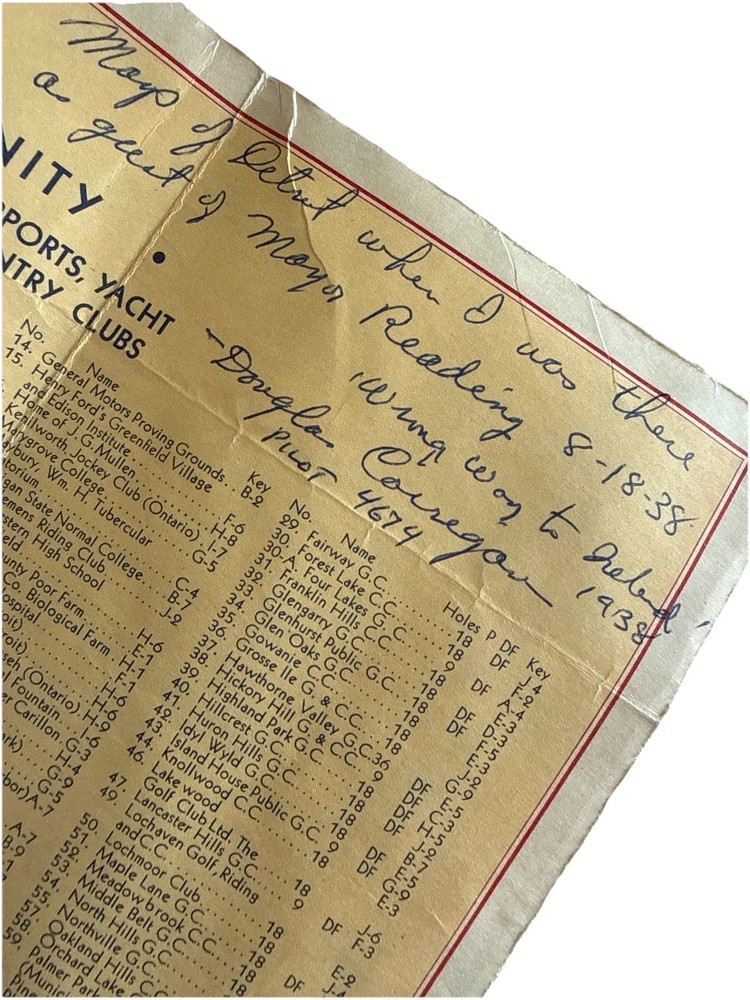 Map of Detroit when I was there
as guest of Mayor Reading 8-18-38
"Wrong Way to Ireland"
1938
- Douglas Corregan
PILOT 4674
NITY
PORTS, YACHT
NTRY CLUBS
No. Name Key
14. General Motors Proving Grounds.. B-2
15. Henry Ford's Greenfield Village
and Edison Institute F-6
Home of J. G. Mullen H-8
Kenilworth Jockey Club (Ontario) I-7
Marygrove College G-5
aybury, Wm. H. Tubercular
torium C-4
gan State Normal College B-7
emens Riding Club J-2
stern High School
ield H-6
unty Poor Farm E-1
Co. Biological Farm H-1
ospital F-1
oit) H-6
roit) H-6
seh (Ontario) H-9
l Fountain I-6
er Carillon G-3
H-4
rk) G-9
G-5
bor) A-7
A-7
B-9
No. Name Holes P DF Key
29. Fairway G.C. 18 DF J-4
30. Forest Lake C.C. 18 DF F-2
30-A. Four Lakes G.C. 9
31. Franklin Hills C.C. 18
32. Glengarry G.C.
33. Glenhurst Public G.C. 18
34. Glen Oaks G.C. 18
35. Gowanie C.C.
36. Grosse Ile G. & C.C. 18
37. Hawthorne Valley G.C. 36
38. Hickory Hill G. & C.C. 9
39. Highland Park G.C. 18
40. Hillcrest G.C.
41. Huron Hills G.C. 18
42. Idyl Wyld G.C.
43. Island House Public G.C. 9
44. Knollwood C.C. 18
46. Lake wood
Golf Club Ltd. The 18
47. Lancaster Hills G.C. 9
49. Lochaven Golf, Riding
and C.C. 18
50. Lochmoor Club 18 DF J-6
51. Maple Lane G.C. 18 F-3
52. Meadowbrook C.C. 18
53. Middle Belt G.C. E-2
54. North Hills G.C. DF J-4
55. Northville G.C.
57. Oakland Hills C.C.
58. Orchard Lake C
59. Palmer Park
(Munici
Pine